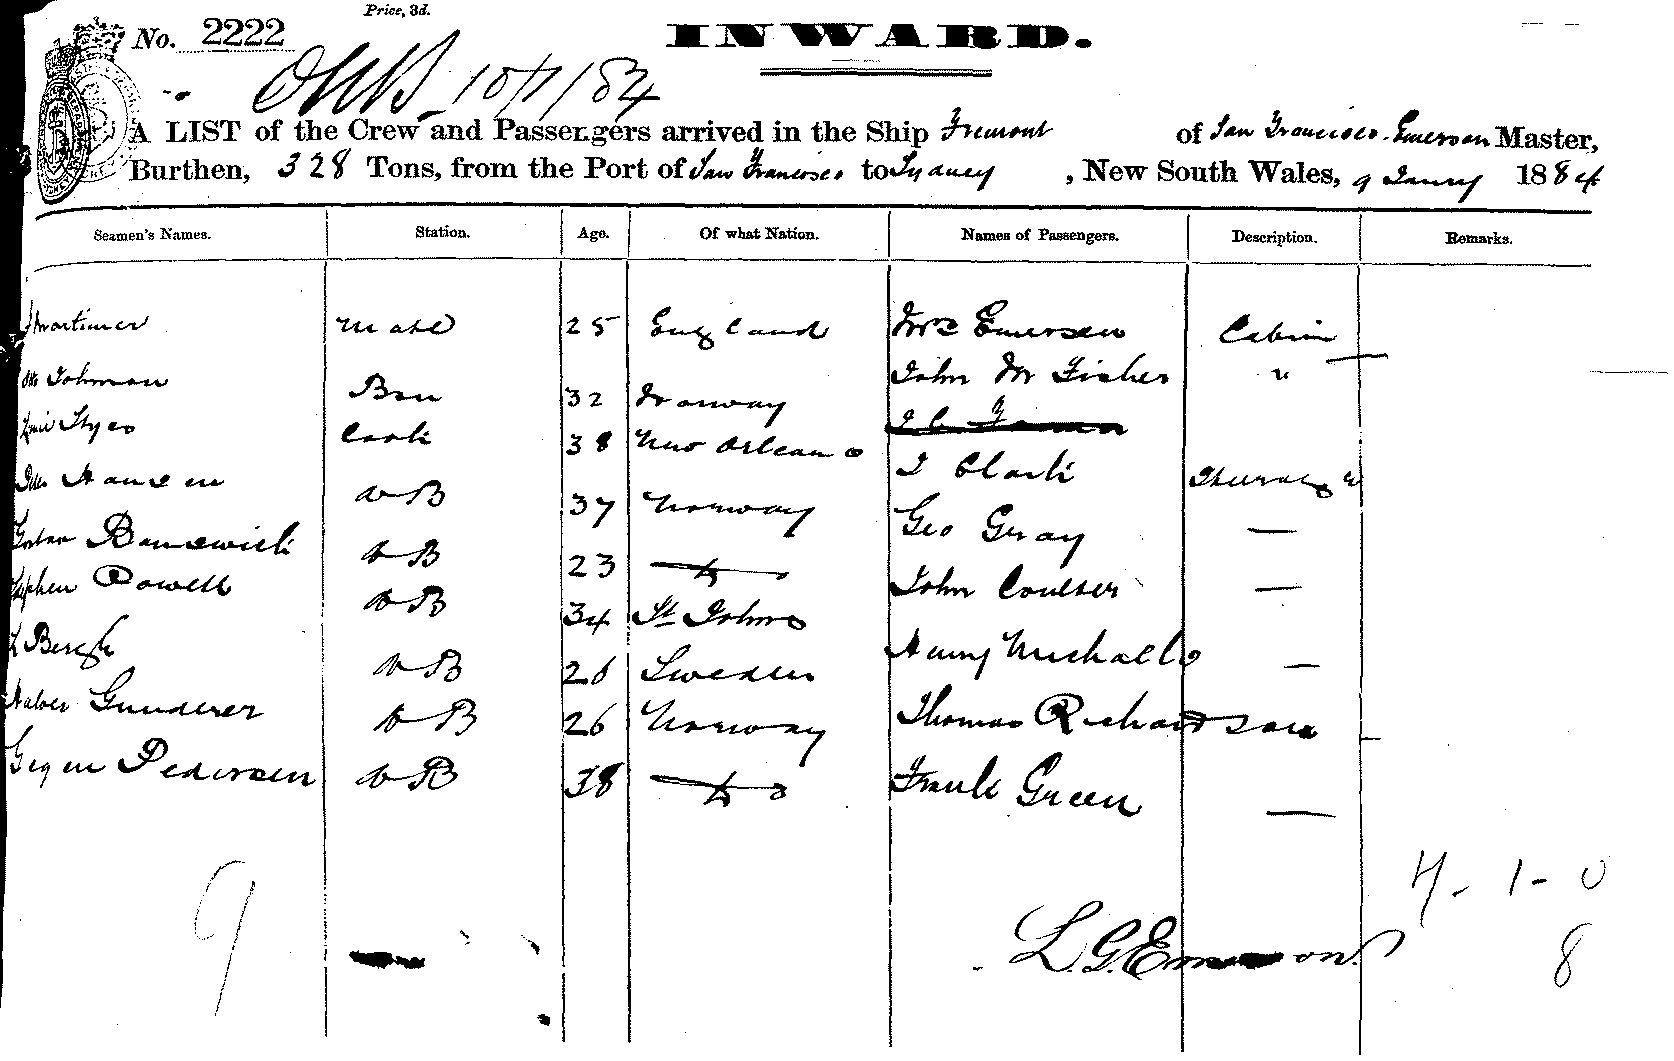 Price, 3d.
No. 2222
INWARD.
10/1/84
A LIST of the Crew and Passengers arrived in the Ship Fremont of San Francisco. Emerson Master,
Burthen, 328 Tons, from the Port of San Francisco to Sydney, New South Wales, 9 Janry 1884
Seamen's Names. Station. Age. Of what Nation. Names of Passengers. Description. Remarks.
Mortimer Mate 25 England Mrs Emerson Cabin
Johnson Bsn 32 Norway John M Fisher "
Cook 38 New Orleans
Hansen AB 37 Norway J Clark Steerage
AB 23 Do Geo Gray —
Stephen Powell AB 34 St Johns John Coulter —
Bergh AB 26 Sweden Henry Nicholls —
Gunderser AB 26 Norway Thomas Richardson
Pedersen AB 38 Do Frank Green —
9
7 - 1 - 0
L. G. Emerson.
8